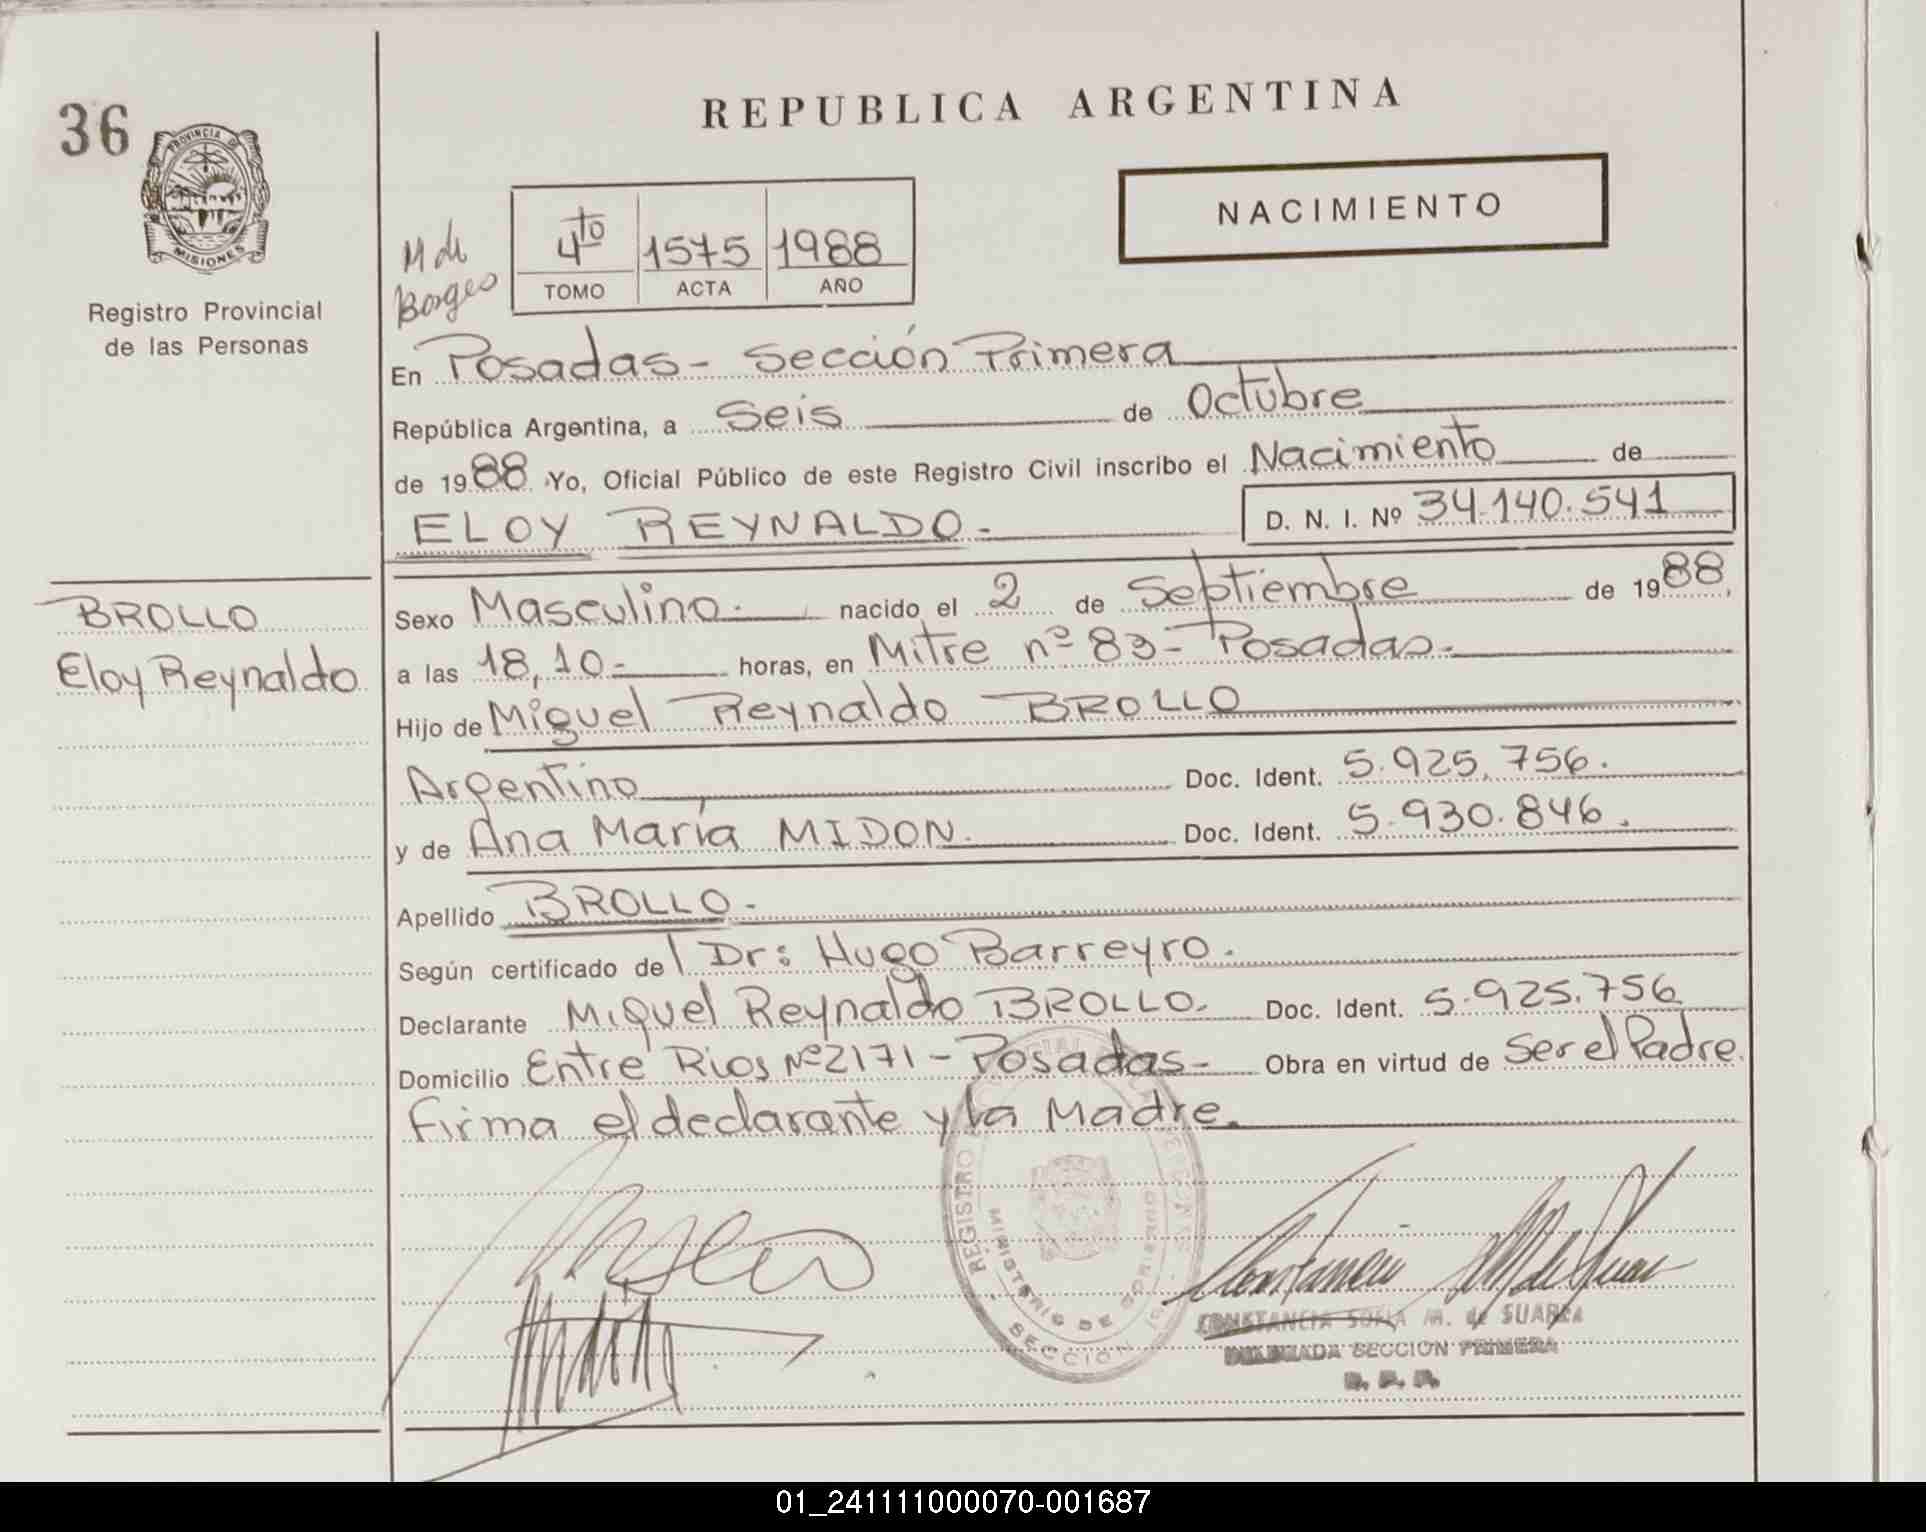 36
REPUBLICA ARGENTINA
PROVINCIA DE
MISIONES
Registro Provincial
de las Personas
M de
Borges
4to 1575 1988
TOMO ACTA AÑO
NACIMIENTO
En Posadas - Sección Primera
República Argentina, a Seis de Octubre
de 1988 Yo, Oficial Público de este Registro Civil inscribo el Nacimiento de
ELOY REYNALDO.- D. N. I. Nº 34.140.541
BROLLO
Eloy Reynaldo
Sexo Masculino.- nacido el 2 de Septiembre de 1988,
a las 18,10- horas, en Mitre nº 83 - Posadas.-
Hijo de Miguel Reynaldo BROLLO
Argentino Doc. Ident. 5.925.756.
y de Ana María MIDON. Doc. Ident. 5.930.846.
Apellido BROLLO.-
Según certificado del Dr: Hugo Barreyro.
Declarante Miguel Reynaldo BROLLO. Doc. Ident. 5.925.756
Domicilio Entre Rios Nº 2171 - Posadas - Obra en virtud de Ser el Padre.
Firma el declarante y la Madre.
REGISTRO
MINISTERIO DE GOBIERNO
SECCION 1ª
CONSTANCIA SOFIA M. de SUAREZ
DELEGADA SECCION PRIMERA
01_241111000070-001687